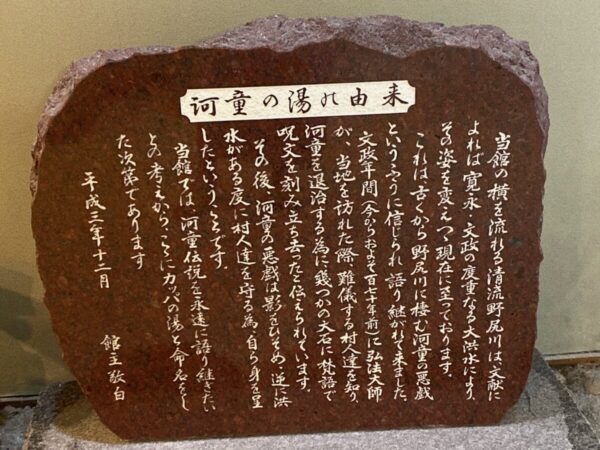 河童の湯の由来
当館の横を流れる清流野尻川は、文献に
よれば寛永・文政の度重なる大洪水により、
その姿を変えつゝ現在に至っております。
これは古くから野尻川に棲む河童の悪戯
というふうに信じられ語り継がれて来ました。
文政年間(今からおよそ百七十年前)に弘法大師
が、当地を訪れた際、難儀する村人達を知り、
河童を退治する為に幾つかの大石に梵語で
呪文を刻み立ち去ったと伝えられています。
その後、河童の悪戯は影をひそめ、逆に洪
水がある度に村人達を守る為、自ら身を呈
したということです。
当館では、河童伝説を永遠に語り継ぎたい
との考えから、こゝにカッパの湯と命名をし
た次第であります
平成三年十二月
館主敬白